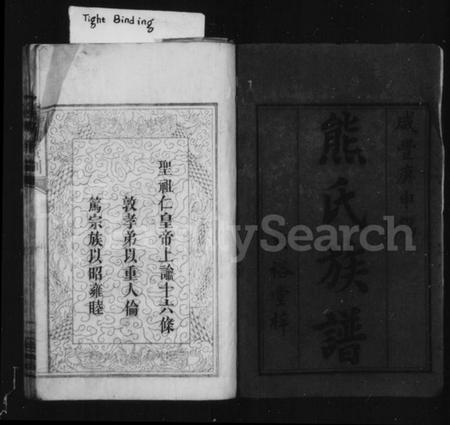 Tight Binding
咸豐庚申
熊氏族譜
裕堂梓
聖祖仁皇帝上諭十六條
敦孝弟以重人倫
篤宗族以昭雍睦
FamilySearch